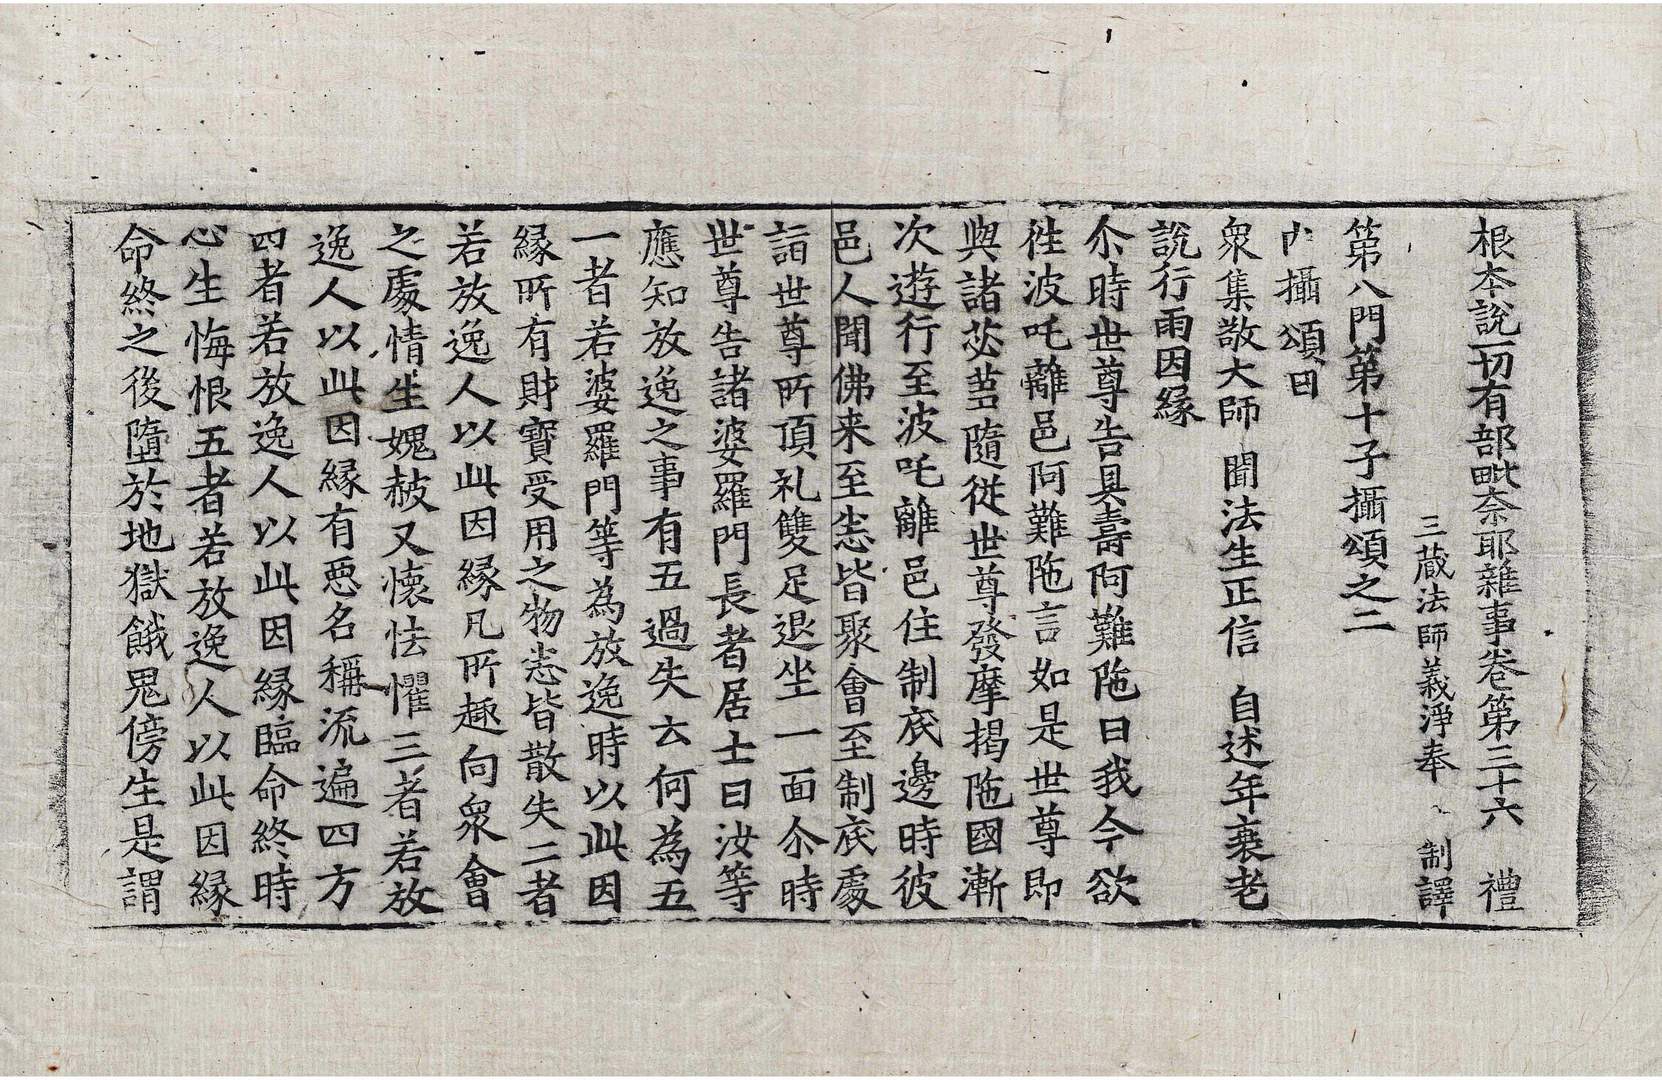 根本說一切有部毗奈耶雜事卷第三十六 禮
三藏法師義淨奉 制譯
第八門第十子攝頌之二
內攝頌曰
衆集敬大師 聞法生正信 自述年衰老
說行雨因緣
尒時世尊告具壽阿難陁曰我今欲
徃波吒離邑阿難陁言如是世尊即
與諸苾蒭隨從世尊發摩揭陁國漸
次遊行至波吒離邑住制底邊時彼
邑人聞佛来至悉皆聚會至制底處
詣世尊所頂礼雙足退坐一面尒時
世尊告諸婆羅門長者居士曰汝等
應知放逸之事有五過失云何為五
一者若婆羅門等為放逸時以此因
緣所有財寶受用之物悉皆散失二者
若放逸人以此因緣凡所趣向衆會
之處情生媿赧又懷怯懼三者若放
逸人以此因緣有惡名稱流遍四方
四者若放逸人以此因緣臨命終時
心生悔恨五者若放逸人以此因緣
命終之後墮於地獄餓鬼傍生是謂